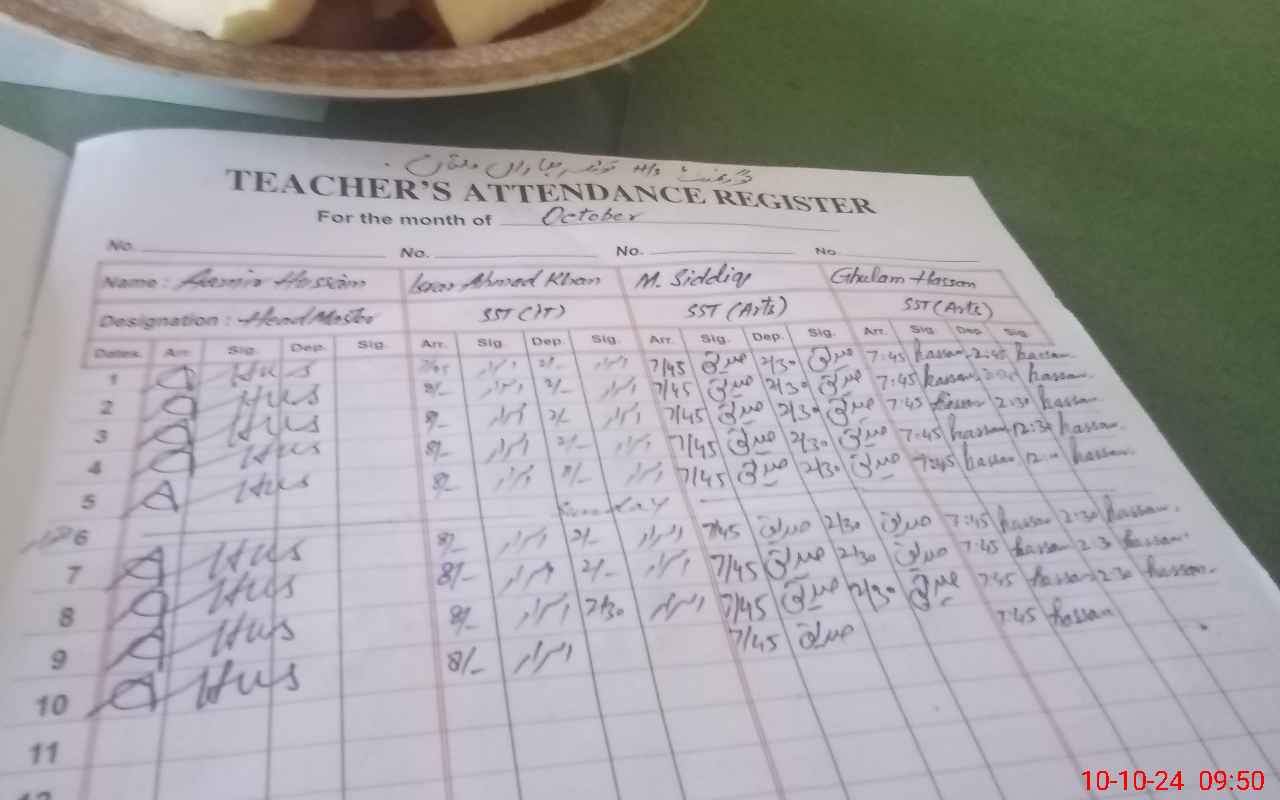 گورنمنٹ H/S
TEACHER'S ATTENDANCE REGISTER
For the month of October
No. No. No. No.
Name : Aamir Hussain Israr Ahmed Khan M. Siddiq Ghulam Hassan
Designation : Head Master SST (IT) SST (Arts) SST (Arts)
Dates. Arr. Sig. Dep. Sig. Arr. Sig. Dep. Sig. Arr. Sig. Dep. Sig. Arr. Sig. Dep. Sig.
1 Hus 7/45 اسرار 2/- اسرار 7/45 صدیق 2/30 صدیق 7:45 hassan 2:45 hassan
2 Hus 8/- اسرار 2/- اسرار 7/45 صدیق 2/30 صدیق 7:45 hassan hassan
3 Hus 8/- اسرار 2/- اسرار 7/45 صدیق 2/30 صدیق 7:45 hassan 2:30 hassan
4 Hus 8/- اسرار 2/- اسرار 7/45 صدیق 2/30 صدیق 7:45 hassan 12:30 hassan
5 Hus 8/- اسرار اسرار 7/45 صدیق 2/30 صدیق 7:45 hassan hassan
6 Sunday
7 Hus 8/- اسرار 2/- اسرار 7/45 صدیق 2/30 صدیق 7:45 hassan 2:30 hassan
8 Hus 8/- اسرار 2/- اسرار 7/45 صدیق 2/30 صدیق 7:45 hassan 2:3 hassan
9 Hus 8/- اسرار 2/30 اسرار 7/45 صدیق 2/30 صدیق 7:45 hassan 2:30 hassan
10 Hus 8/- اسرار 7/45 صدیق 7:45 hassan
11
12
10-10-24 09:50